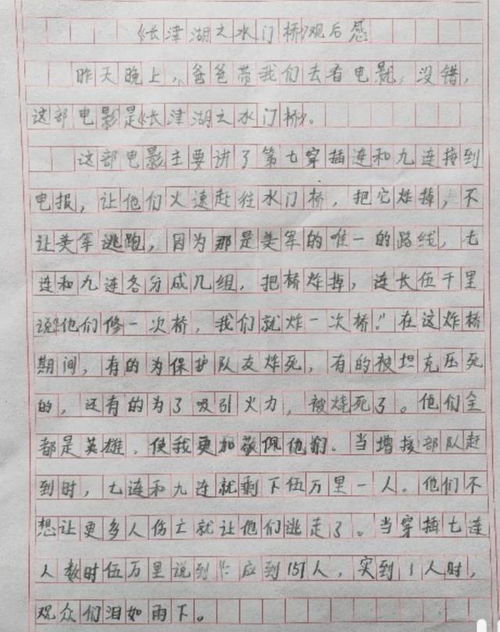 《长津湖之水门桥》观后感
昨天晚上，爸爸带我们去看电影，没错，
这部电影是《长津湖之水门桥》。
这部电影主要讲了第七穿插连和九连接到
电报，让他们火速赶往水门桥，把它炸掉，不
让美军逃跑，因为那是美军的唯一的路线，七
连和九连各分成几组，把桥炸掉，连长伍千里
说“他们修一次桥，我们就炸一次桥。”在这炸桥
期间，有的为保护队友炸死，有的被坦克压死
的，还有的为了吸引火力，被烧死了。他们全
都是英雄，使我更加敬佩他们。当增援部队赶
到时，七连和九连就剩下伍万里一人。他们不
想让更多人伤亡就让他们逃走了。当穿插七连
人数时伍万里说到应到157人，实到1人时，
观众们泪如雨下。